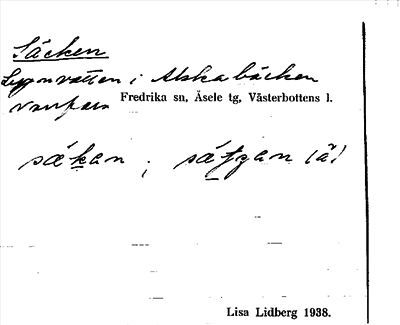 Säcken
Lugnvatten i Alskabäcken
Fredrika sn, Åsele tg, Västerbottens l.
säkan ; (ä)
Lisa Lidberg 1938.